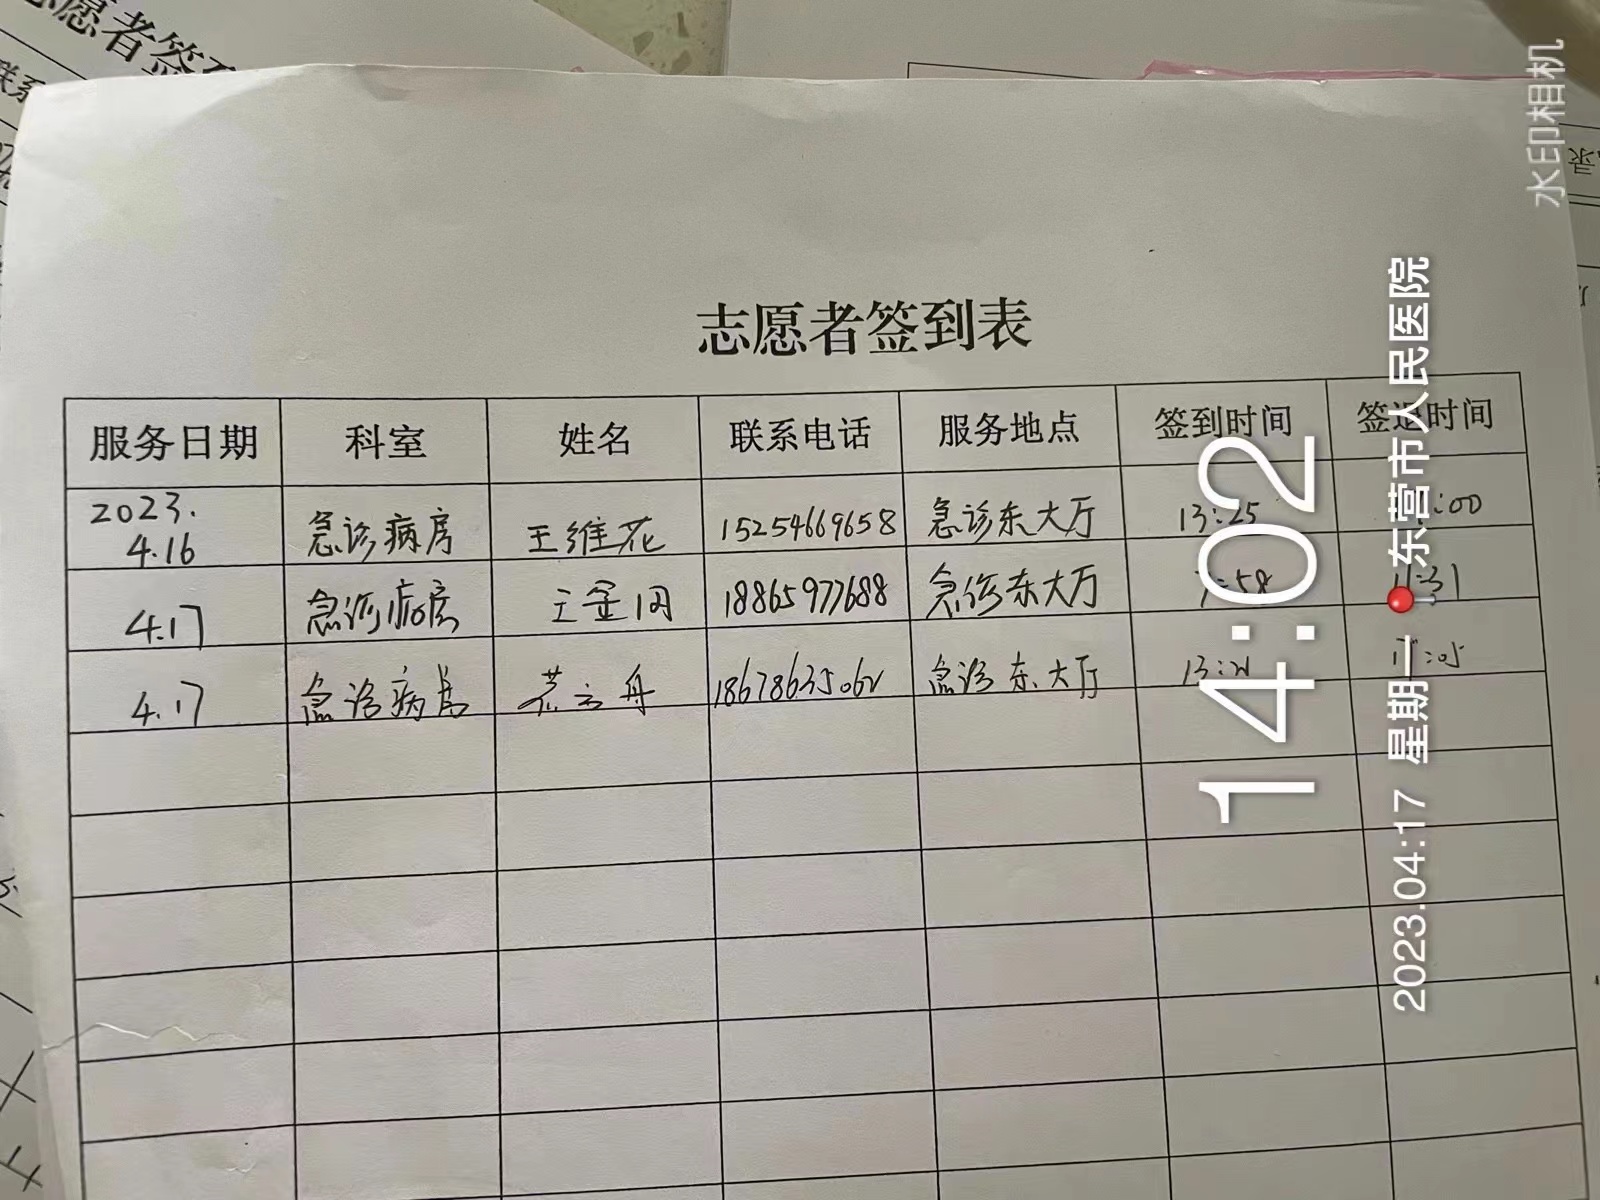 志愿者签
联系
水印相机
录
志愿者签到表
服务日期 科室 姓名 联系电话 服务地点 签到时间 签退时间
2023.
4.16 急诊病房 王维花 15254669658 急诊东大厅 13:25 :00
4.17 急诊病房 王金 18865977688 急诊东大厅 7:58 11:31
4.17 急诊病房 急诊东大厅
14:02
2023.04.17 星期一 东营市人民医院